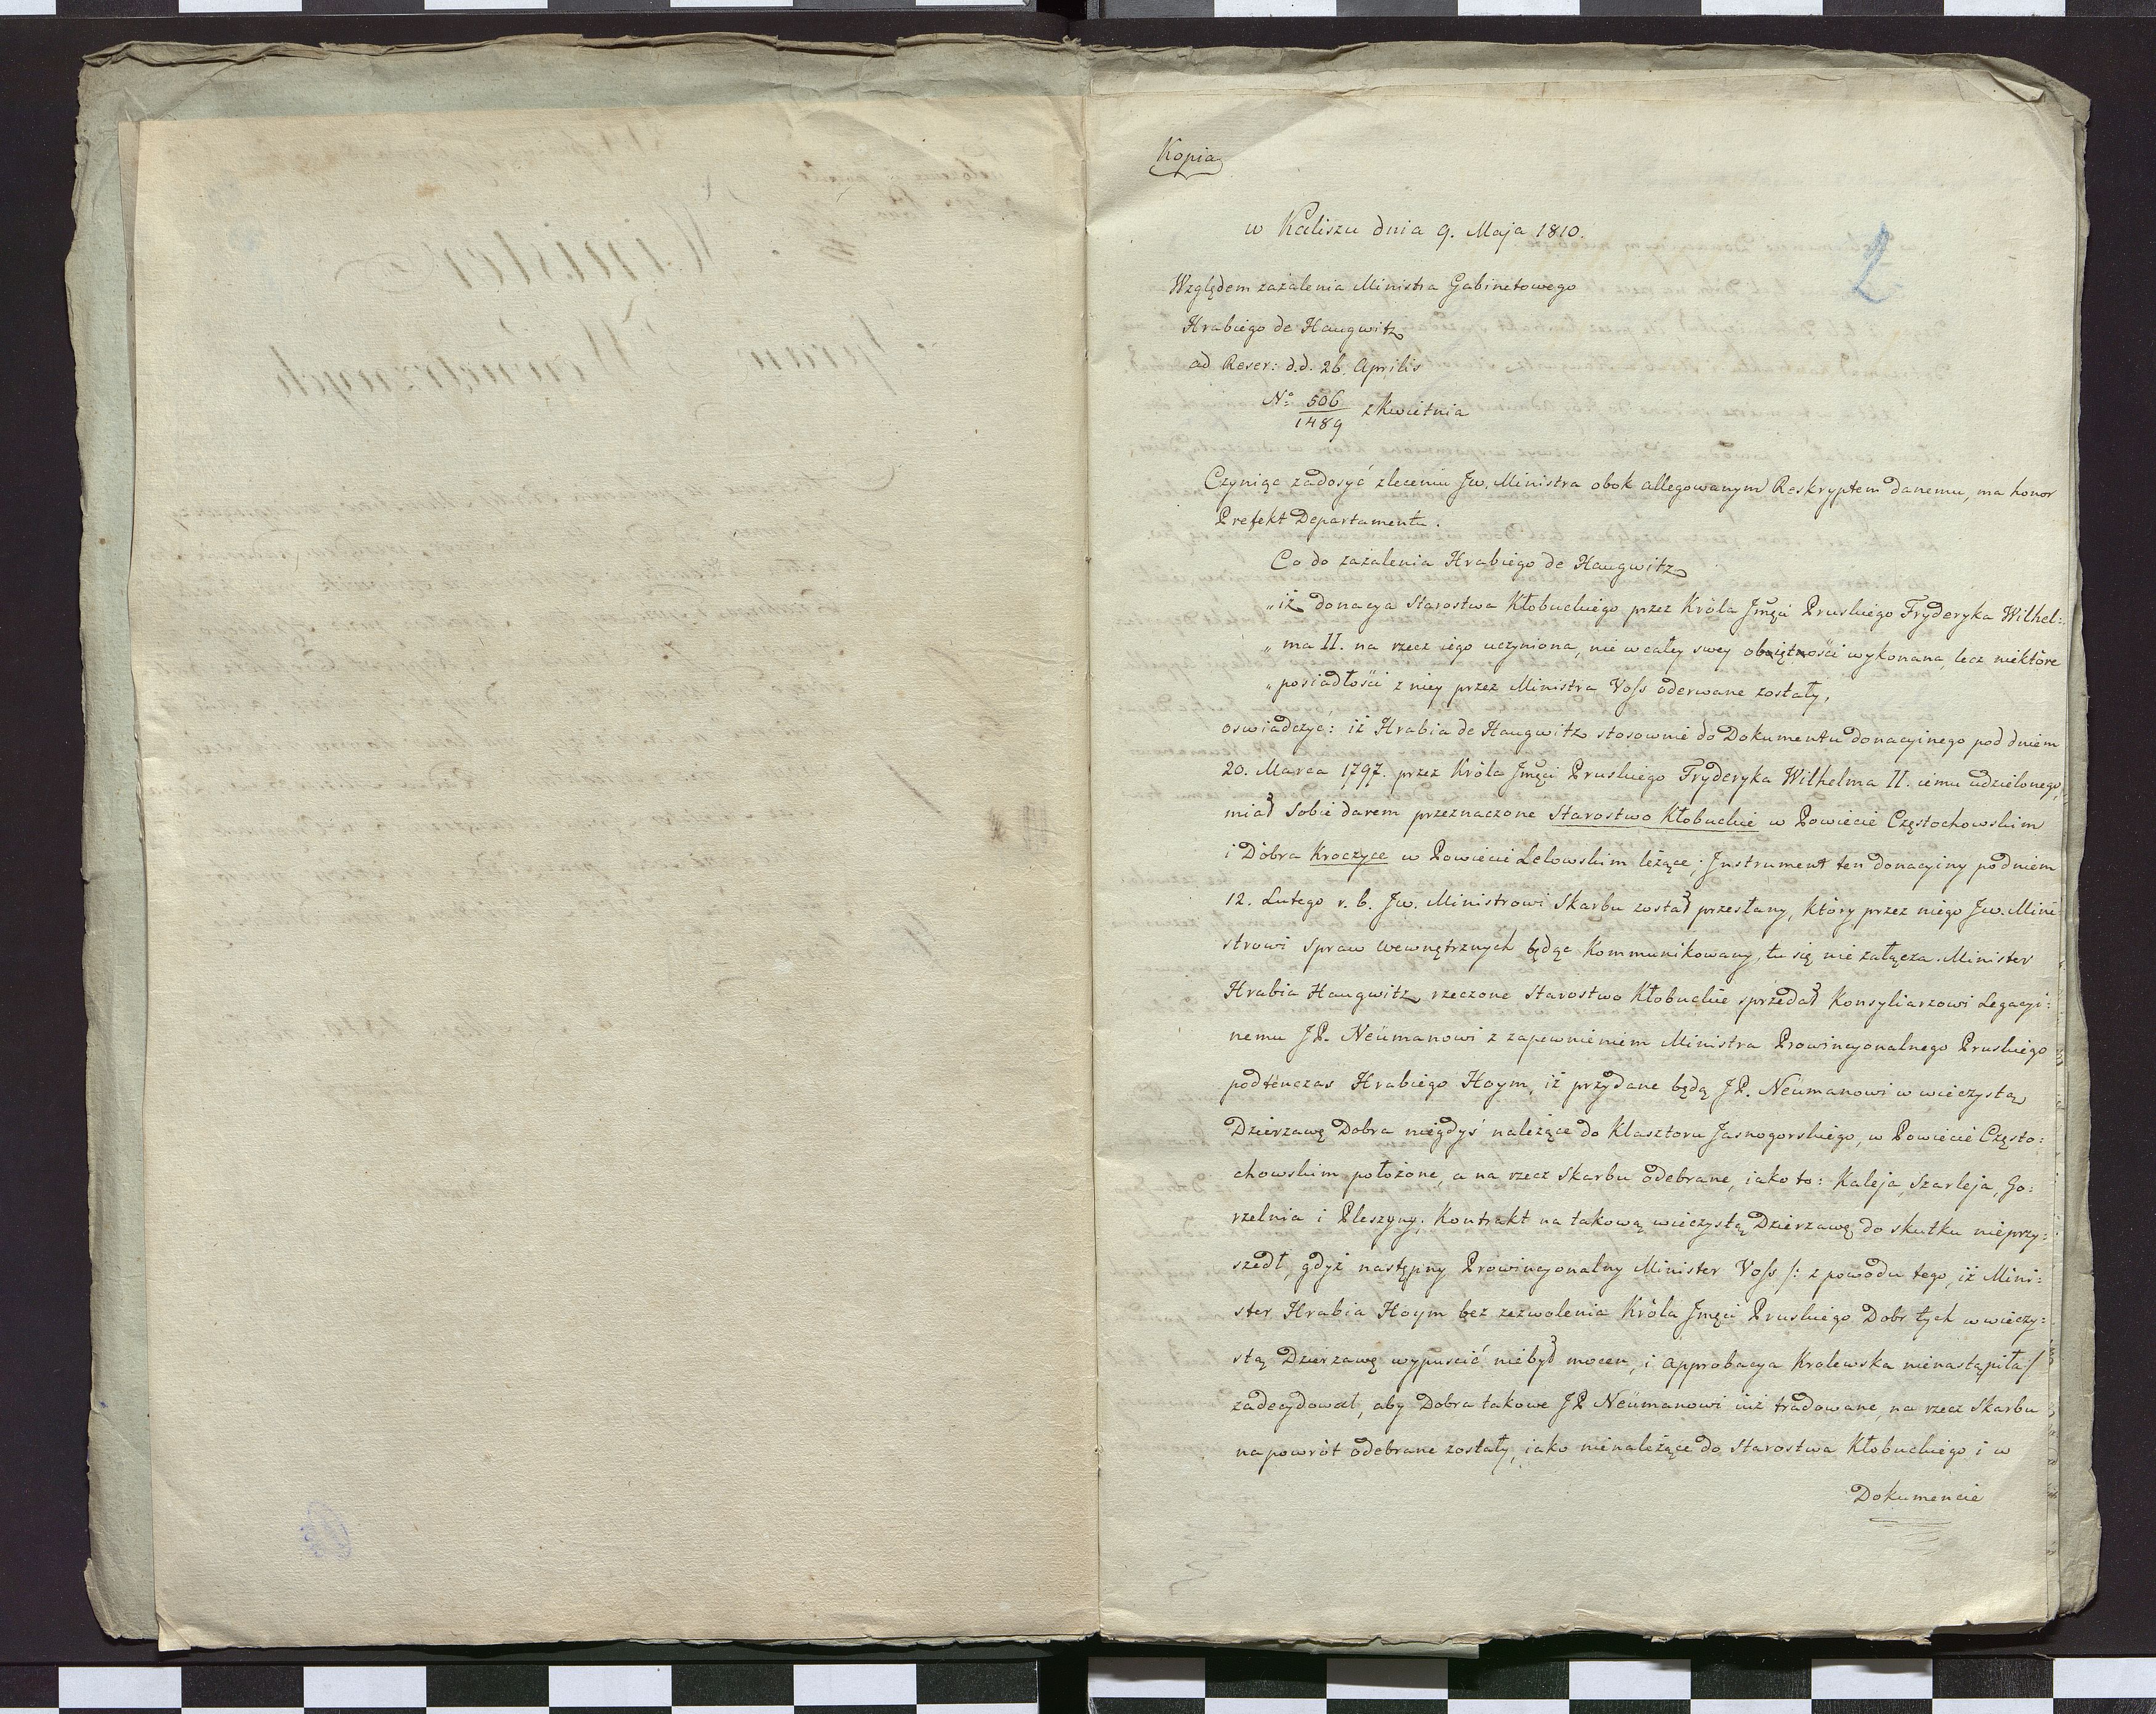 Kopia
2
w Kaliszu dnia 9. Maja 1810.
Względem zażalenia Ministra Gabinetowego
Hrabiego de Haugwitz
ad Rescr: d.d. 26. Aprilis
No 506/1489 z Kwietnia
Czyniąc zadosyć zleceniu Jw. Ministra obok allegowanym Reskryptem danemu, ma honor
Prefekt Departamentu.
Co do zażalenia Hrabiego de Haugwitz
„iż donacya Starostwa Kłobuckiego przez Króla Jmści Pruskiego Fryderyka Wilhel:
„ma II. na rzecz iego uczyniona, nie w całey swey obiętności wykonana, lecz niektóre
„posiadłości z niey przez Ministra Voss oderwane zostały,
oswiadczyc: iż Hrabia de Haugwitz stosownie do Dokumentu donacyinego pod dniem
20. Marca 1797. przez Króla Jmści Pruskiego Fryderyka Wilhelma II. iemu udzielonego,
miał sobie darem przeznaczone Starostwo Kłobuckie w Powiecie Częstochowskim
i Dobra Kroczyce w Powiecie Lelowskim leżące; Instrument ten donacyiny pod dniem
12. Lutego r. b. Jw. Ministrowi Skarbu został przesłany, który przez niego Jw. Mini
strowi Spraw wewnętrznych będąc Kommunikowany, tu się nie załącza. Minister
Hrabia Haugwitz rzeczone Starostwo Kłobuckie sprzedał Konsyliarzowi Legacyi:
nemu JP. Neümanowi z zapewnieniem Ministra Prowincyonalnego Pruskiego
podtenczas Hrabiego Hoym, iż przydane będą JP. Neümanowi w wieczystą
Dzierzawę Dobra niegdyś należące do Klasztoru Jasnogorskiego, w Powiecie Często:
chowskim położone, a na rzecz Skarbu odebrane, iako to: Kaleja, Szarleja, Go:
rzelnia i Pleszyny; Kontrakt na takową wieczystą Dzierzawę do skutku nieprzy:
szedł, gdyż następny Prowincyonalny Minister Voss /: z powodu tego, iż Mini:
ster Hrabia Hoym bez zezwolenia Króla Jmści Pruskiego Dobr tych w wieczy:
stą Dzierzawę wypuscić niebył mocen, i approbacya Krolewska nienastąpiła /
zadecydował, aby Dobra takowe JP Neümanowi iuż tradowane, na rzecz Skarbu
napowrót odebrane zostały, iako nienależące do Starostwa Kłobuckiego i w
Dokumencie